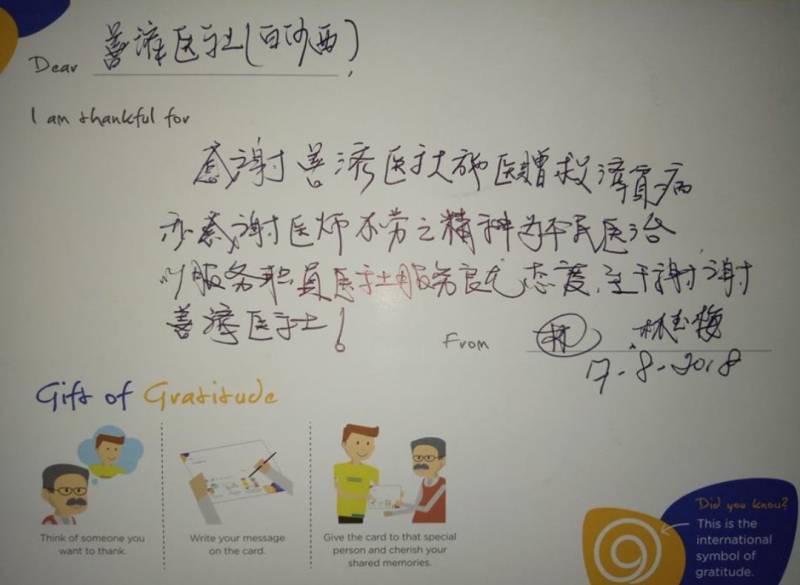 Dear 善济医社(白沙西),
I am thankful for
感谢善济医社施医赠救济贫病
亦感谢医师不劳之精神为平民医治
以服务职员医社服务良无态度,至于谢谢
善济医社!
From 林 林玉梅
17-8-2018
Gift of Gratitude
Think of someone you
want to thank.
Write your message
on the card.
Give the card to that special
person and cherish your
shared memories.
Did you know?
This is the
international
symbol of
gratitude.